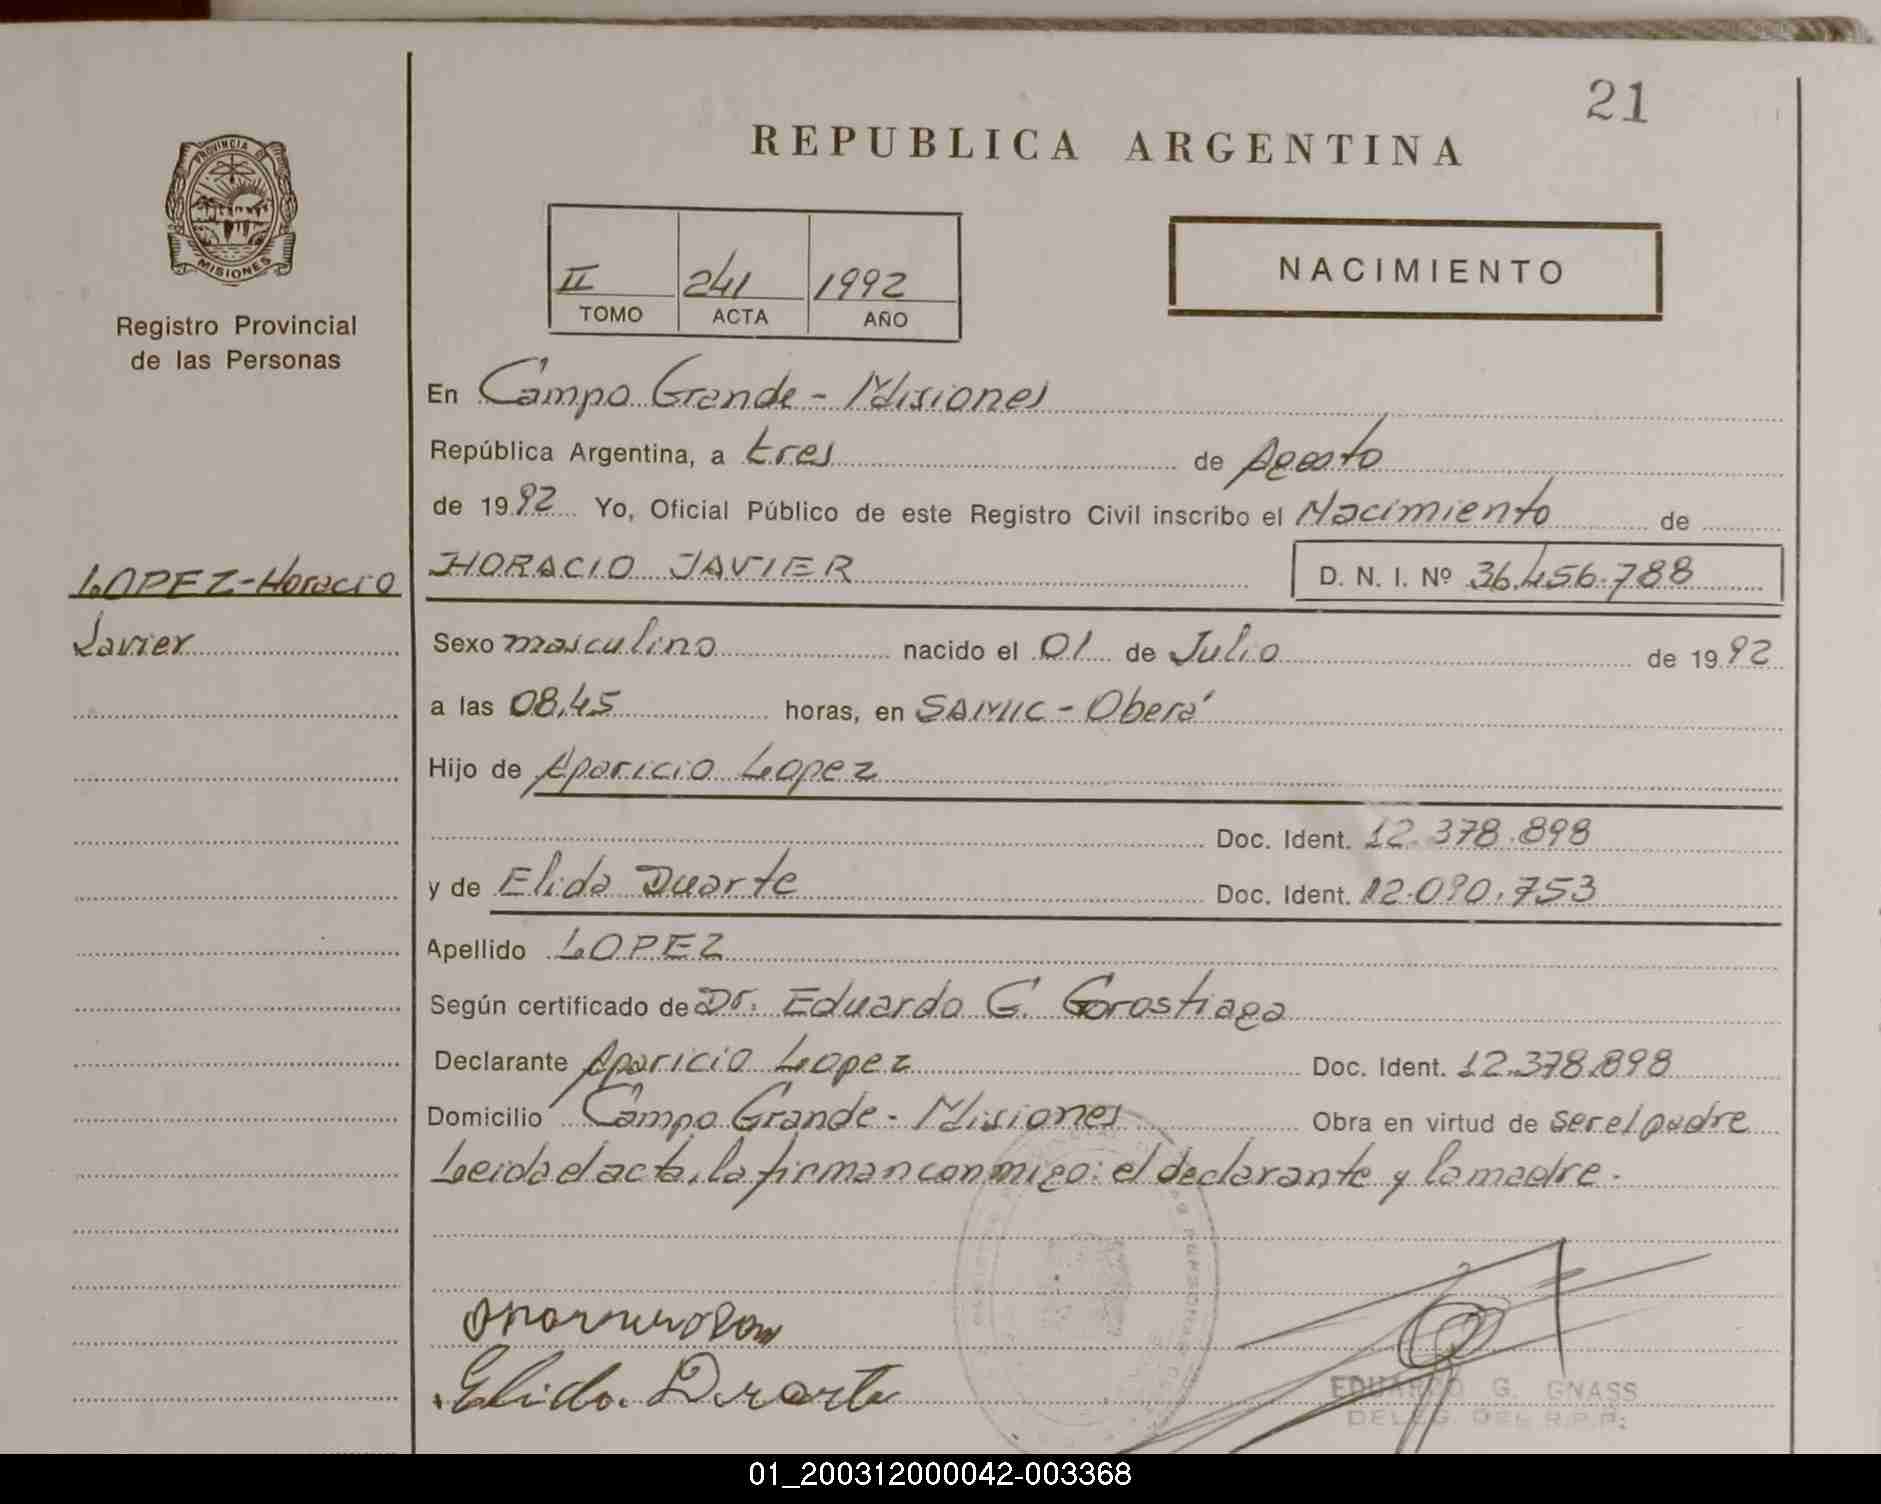 21
REPUBLICA ARGENTINA
PROVINCIA DE
MISIONES
Registro Provincial
de las Personas
II 241 1992
TOMO ACTA AÑO
NACIMIENTO
En Campo Grande - Misiones
República Argentina, a tres de Agosto
de 1992 Yo, Oficial Público de este Registro Civil inscribo el Nacimiento de
LOPEZ-Horacio
Javier
HORACIO JAVIER D. N. I. Nº 36.456.788
Sexo masculino nacido el 01 de Julio de 1992
a las 08,45 horas, en SAMIC - Oberá
Hijo de Aparicio Lopez
Doc. Ident. 12.378.898
y de Elida Duarte Doc. Ident. 12.090.753
Apellido LOPEZ
Según certificado de Dr. Eduardo G. Gorostiaga
Declarante Aparicio Lopez Doc. Ident. 12.378.898
Domicilio Campo Grande - Misiones Obra en virtud de ser el padre
Leida el acta, la firman conmigo: el declarante y la madre.
Elida Duarte
EDUARDO G. GNASS
DELEG. DEL R.P.P.
01_200312000042-003368